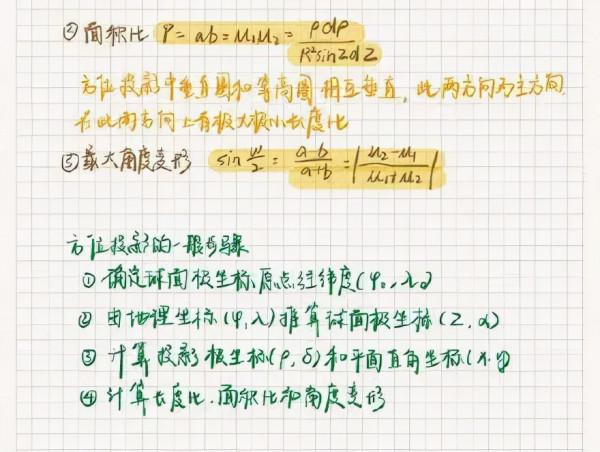 ② 面积比 P = ab = μ₁μ₂ = ρdρ / R²sinZdZ
方位投影中垂直圈和等高圈相互垂直，此两方向为主方向，
在此两方向上有极大极小长度比
③ 最大角度变形 sin ω/2 = a-b / a+b = | μ₂-μ₁ / μ₁+μ₂ |
方位投影的一般步骤
① 确定球面极坐标原点经纬度(φ₀,λ₀)
② 由地理坐标(φ,λ)推算球面极坐标(Z,α)
③ 计算投影极坐标(ρ,δ)和平面直角坐标(x,y)
④ 计算长度比、面积比和角度变形